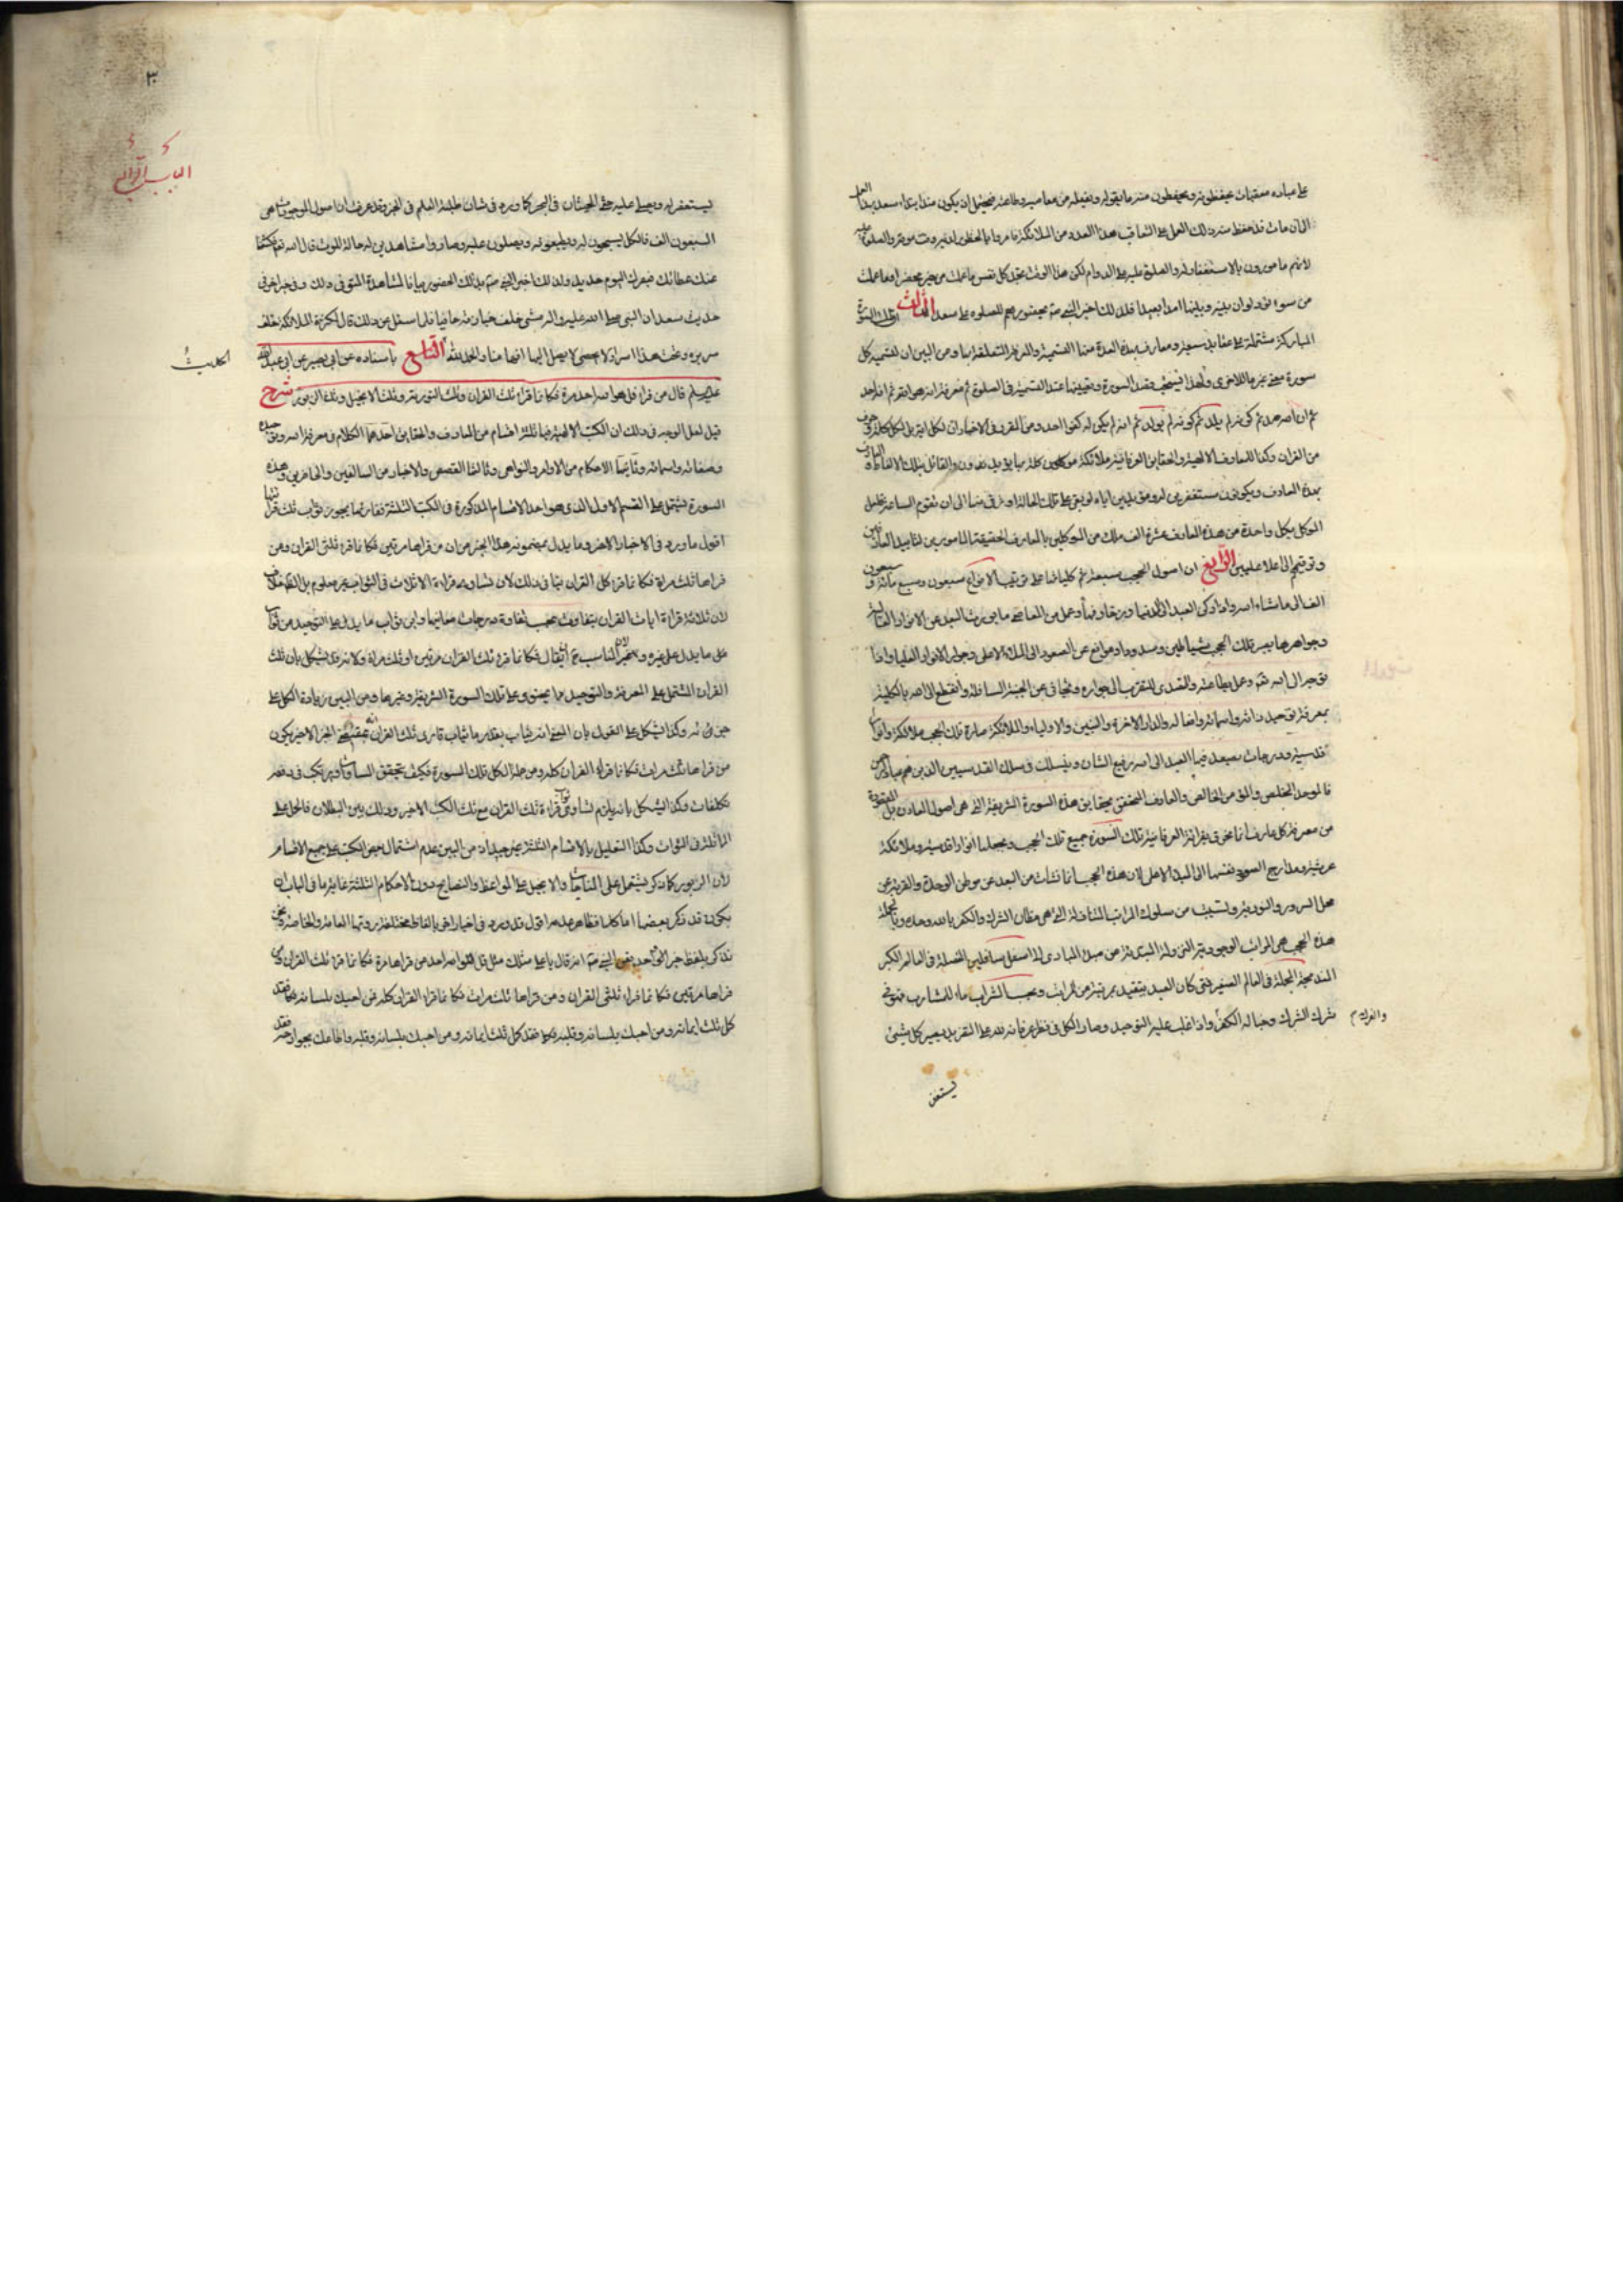 على عباده معقبات يحفظونه ويحفظون منه ما يقوله ويفعله من معاصيه وطاعته فيحتمل ان يكون منذ ابتداء سعد بهذا العمل
الى آن مات قد حفظ منه ذلك العمل على التعاقب هذا العدد من الملائكة
لانهم مامورون بالاستغفار له والصلوة عليه على الدوام لكن هذا الوقت تجد كل نفس ما عملت من خير محضرا وما عملت
من سوء تود لو ان بينه وبينها امدا بعيدا فلذلك اخبر النبي صم بحضورهم للصلوة على سعد الثالث ان تلك السورة
المباركة مشتملة على عقايد ومعارف بهذه العدة منها التسمية والمعرفة المتعلقة بها ومن البين ان تسمية كل
سورة معنى غير ما للاخرى ولهذا يستحب قصد السورة وتعيينها عند التسمية في الصلوة ثم معرفة انه هو الله ثم انه احد
ثم ان الله صمد ثم كونه لم يلد ثم كونه لم يولد ثم انه لم يكن له كفوا احد ومن المقرر في الاخبار ان لكل اية بل لكل كلمة وحرف
من القران وكذا للمعارف الالهية والحقايق العرفانية ملائكة موكلون
بهذه المعارف ويكونون مستغفرين له ومؤيدين اياه لو بقي على تلك الحالة او ترقى منها الى ان تقوم الساعة
الموكل بكل واحدة من هذه المعارف عشرة الف ملك من الموكلين بالمعارف الحقيقة المامورين لتاييد العارفين
وترقيهم الى اعلا عليين الرابع ان اصول الحجب سبعة ثم كلياتها على ترتيب الانواع سبعون وسبع مائة وسبعون
الف الى ما شاء الله واذا ركن العبد الى الدنيا وزخارفها وعمل من المعاصي ما يورث البعد عن الانوار العالية
وجواهرها يصير تلك الحجب شياطين وسدودا وموانع عن الصعود الى الملاء الاعلى وجوار الانوار العليا واذا
توجه الى الله تعم وعمل بطاعته والتصدى للتقرب الى جواره وتجافى عن الجنبة السافلة وانقطع الى الله بالكلية
بمعرفة توحيد ذاته واسمائه وافعاله والدار الاخرة والنبيين والاولياء والملائكة صارت تلك الحجب ملائكة وانوارا
قدسية ودرجات يصعد فيها العبد الى الله رفيع الشان وينسلك في سلك القدسيين الذين هم
فالموحد المخلص والمؤمن الخالص والعارف المتحقق بحقايق هذه السورة الشريفة التي هي اصول المعارف بل المقصودة
من معرفة كل عارف انما يخرق بقراءته العرفانية تلك السورة جميع تلك الحجب ويجعلها انوارا قدسية وملائكة
عرشية ومدارج السعود نفسها الى المبدا الاعلى لان هذه الحجب انما نشات من البعد عن موطن الوحدة والقرية عن
محل السرور والنور من سلوك المراتب المتنافلة التي هي مظان الشرك والكفر بالله وحده وبالجملة
هذه الحجب هي المراتب الوجودية النزولية المبتدئة من مبدا المبادى الى اسفل سافلين المفصلة في العالم الكبير
المندمجة المجملة في العالم الصغير فمتى كان العبد يتقيد بمرتبة من المراتب ويحسب الشراب ماء للشارب فهو في
شرك الشرك وحباله الكفر واذا غلب عليه التوحيد وصار الكل في نظر عرفانه لله على التقريب يصير كل شيئ
يستغفر
٣٠
ليستغفر له ويصلي عليه حتى الحيتان في البحر كما ورد في شان طلبة العلم في الخبر وقد عرفت ان اصول الموجودات هي
السبعون الف فالكل يسبحون له ويطيعونه ويصلون عليه وصاروا مشاهدين له حالة الموت قال الله تعم فكشفنا
عنك غطائك فبصرك اليوم حديد ولذلك اخبر النبي صم بذلك الحضور بيانا لمشاهدة المتوفى ذلك وفي خبر اخر في
حديث سعد ان النبي صلى الله عليه واله مشى خلف جنازته حافيا فلما سئل عن ذلك قال الملائكة خلف
سريره وتحت هذا اسرار لا تحصى لا يصل اليها افهامنا والحمد لله التاسع باسناده عن ابي بصير عن ابي عبد الله
عليه السلم قال من قراء قل هو الله احد مرة فكانما قراء ثلث القران وثلث التورية وثلث الانجيل وثلث الزبور شرح
قيل لعل الوجه في ذلك ان الكتب الالهية فيها ثلثة اقسام من المعارف والحقايق احدهما الكلام في معرفة الله وتوحيده
وصفاته واسمائه وثانيها الاحكام من الاوامر والنواهي وثالثها القصص والاخبار من السالفين والحاضرين وهذه
السورة تشتمل على القسم الاول الذي هو احد الاقسام المذكورة في الكتب الثلثة فقاريها يحوز ثواب ثلث قرائتها
اقول ما ورد في الاخبار الاخر وما يدل بمضمونه هذا الخبر من ان من قراها مرتين فكانما قراء ثلثي القران ومن
قراها ثلث مرات فكانما قراء كل القران ينافي ذلك لان تساوى قراءة الاثلاث في الثواب غير معلوم بل الظ خلافه
لان ثلاثة قراءة ايات القران يتفاوت بحسب تفاوت درجات معانيها واين ثواب ما يدل على التوحيد من ثواب
على ما يدل على غيره
القران المشتمل على المعرفة والتوحيد مما يحتوى على تلك السورة الشريفة وغيرها ومن البين زيادة الكل على
جزئه وكذا يشكل على القول بان المعنى انه يثاب بقدر ما يثاب قارى ثلث القران الخبر الاخير يكون
من قراها ثلث مرات فكانما قراء القران كله ومن جملة الكل تلك السورة فكيف يتحقق المساواة ويرتكب في دفعه
تكلفات وكذا يشكل بانه يلزم تساوى ثواب قراءة ثلث القران مع ثلث الكتب الاخير وذلك بين البطلان فالحمل على
المماثلة في الثواب وكذا التعليل بالاقسام الثلثة غير جيد اذ من البين عدم اشتمال بعض الكتب على جميع الاقسام
لان الزبور كما ذكر يشتمل على المناجات والانجيل على المواعظ والنصايح دون الاحكام الثلثة غاية ما في الباب ان
يكون قد ذكر بعضها اما كلها فظاهر عدمه اقول قد ورد في اخبار اخر بالفاظ مختلفة روتها العامة والخاصة ونحن
نذكر بلفظ خبر النبي صم انه قال يا علي مثلك مثل قل هو الله احد من قراها مرة فكانما قراء ثلث القران ومن
قراها مرتين فكانما قراء ثلثي القران ومن قراها ثلث مرات فكانما قراء القران كله فمن احبك بلسانه فقد
كمل ثلث ايمانه ومن احبك بلسانه وقلبه فقد كمل ثلثا ايمانه ومن احبك بلسانه وقلبه واطاعك بجوارحه فقد
الحديث